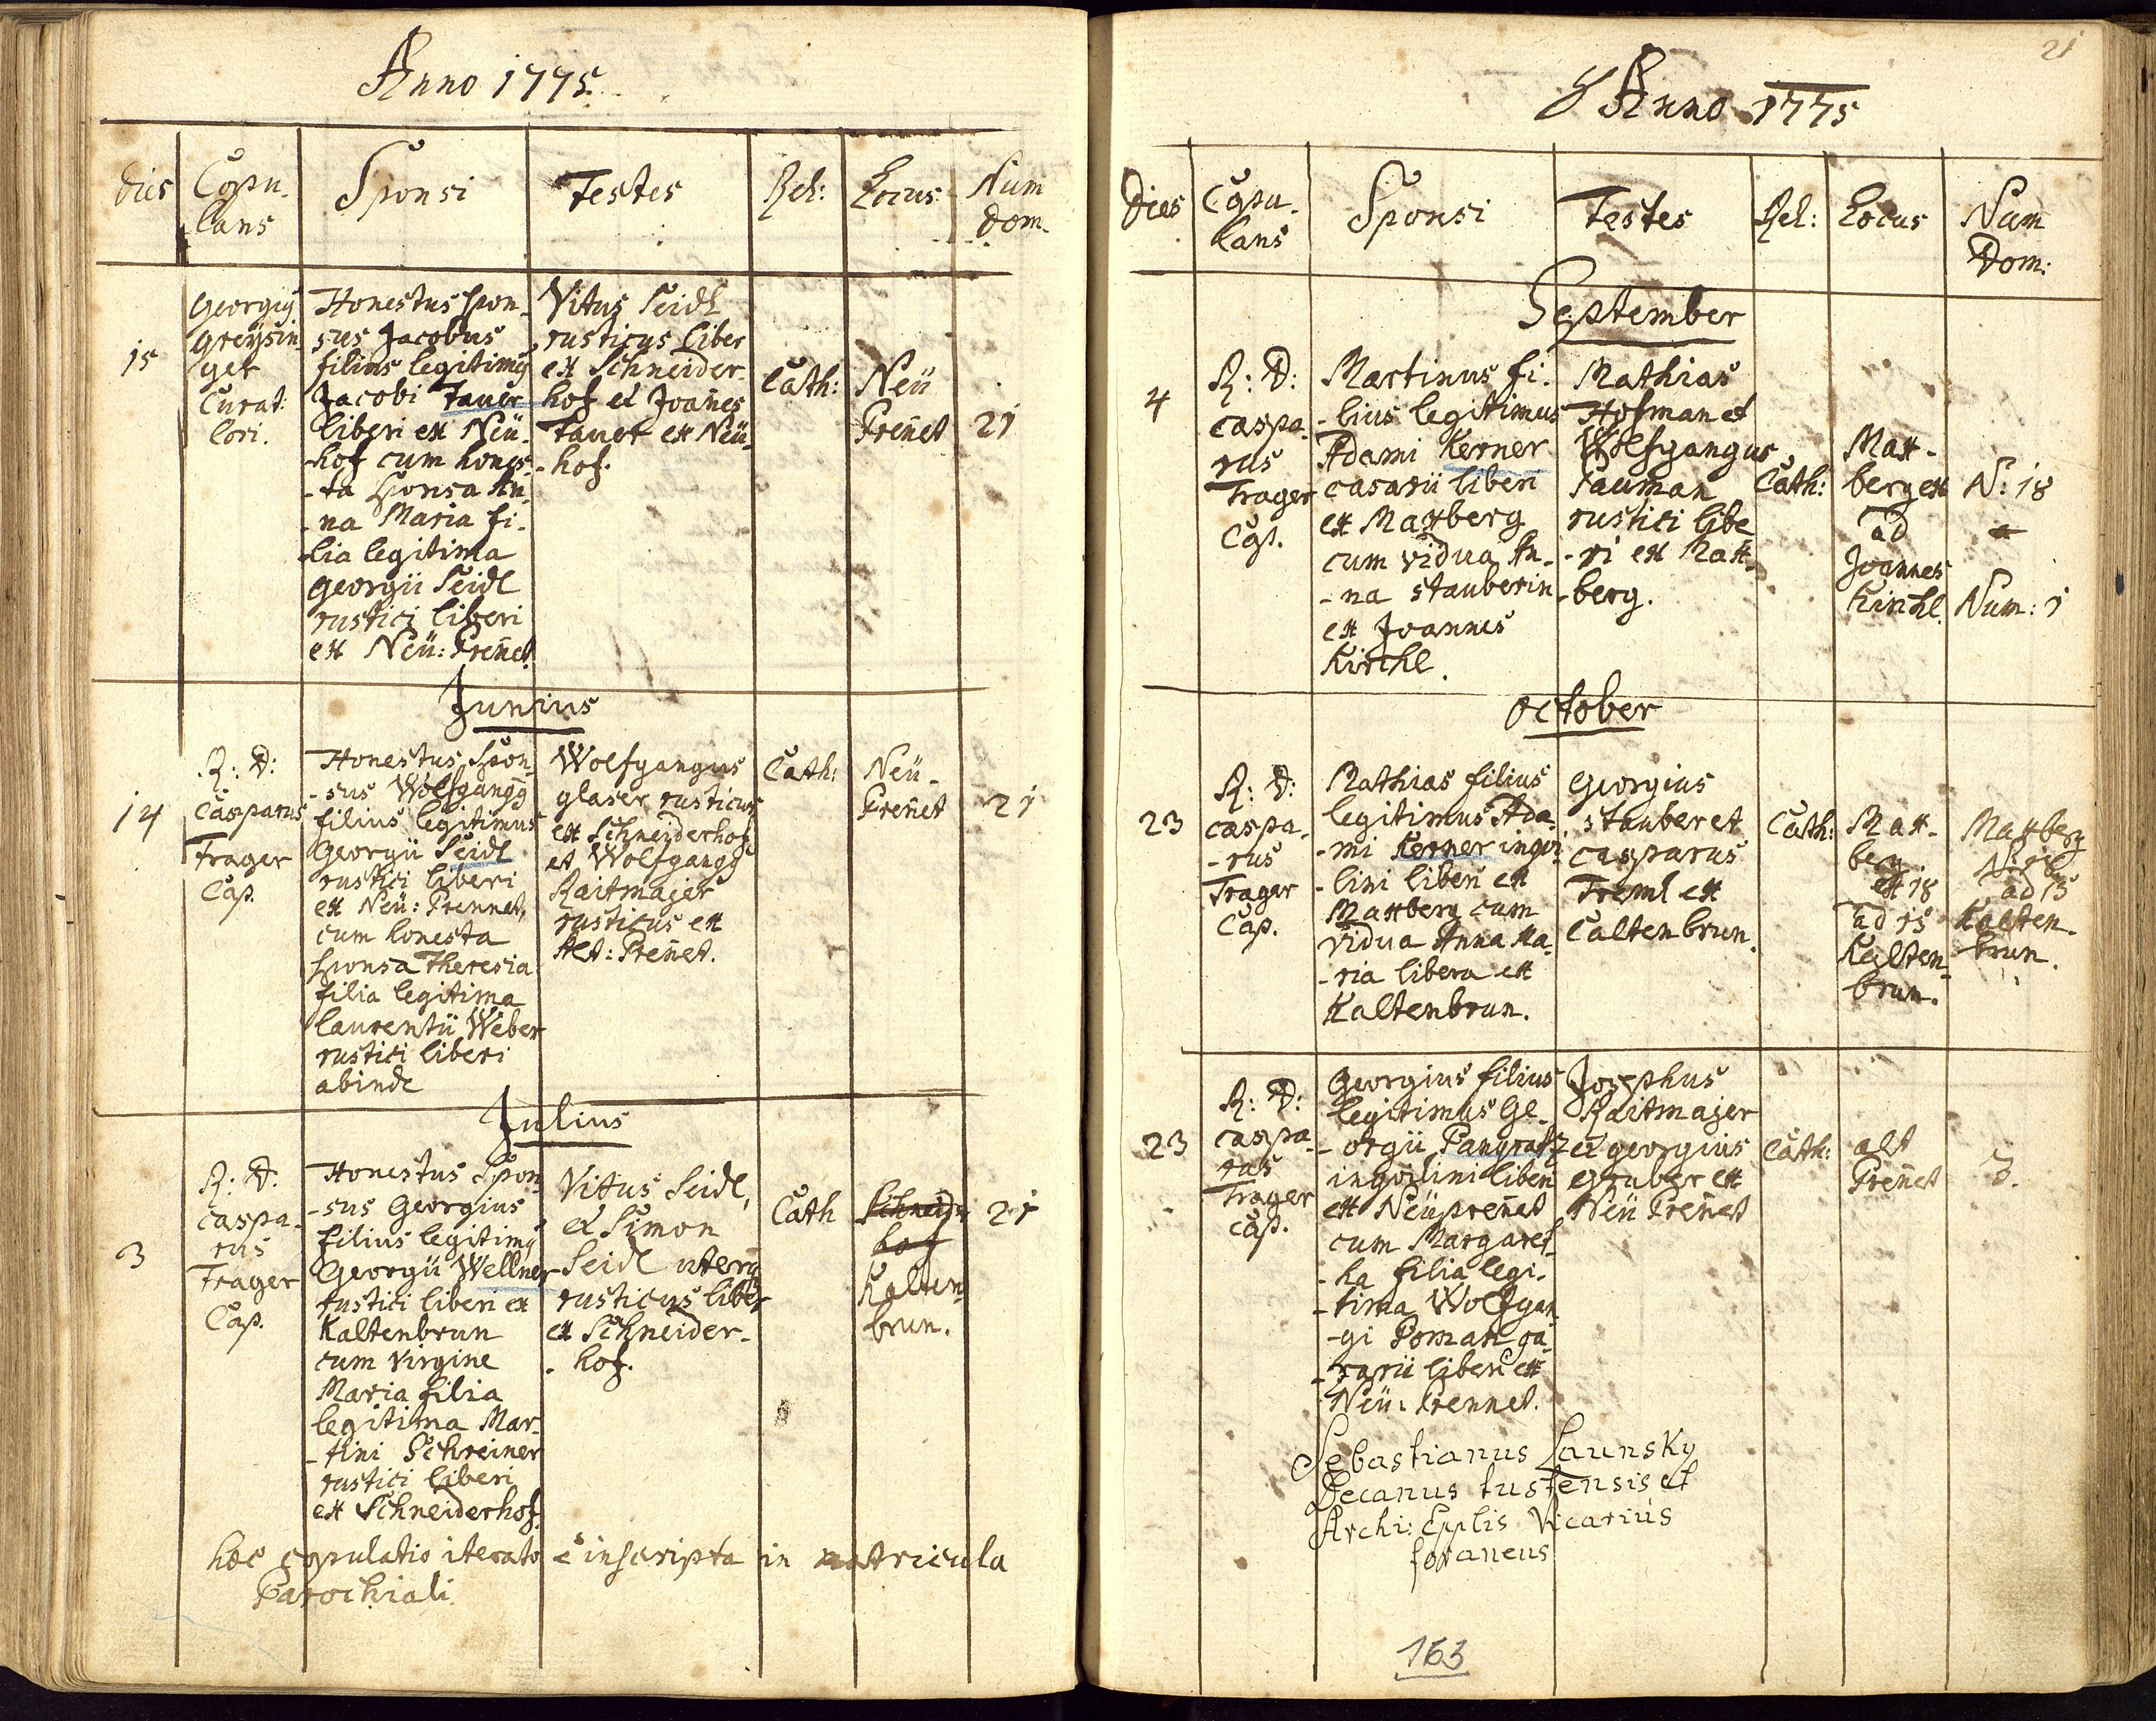 Anno 1775.
Dies Copu- Sponsi Testes Rel: Locus Num
lans Dom.
15
Georgiꝰ
Greysin-
ger
Curat:
lori.
Honestus spon-
sus Jacobus
filius legitimꝰ
Jacobi Tauer
liberi ex Neü-
-hof cum hones-
-ta sponsa An-
-na Maria fi-
lia legitima
Georgii Seidl
rustici liberi
ex Neü: Preñet.
Vitus Seidl
rusticus liber
ex Schneider-
hof et Joañes
Tauer ex Neü-
-hof.
Cath:
Neü
Preñet
21
Junius
14
R: D:
Casparus
Trager
Cap.
Honestus spon-
-sus Wolfgangꝰ
filius legitimus
Georgii Seidl
rustici liberi
ex Neü: Prennet,
cum honesta
sponsa Theresia
filia legitima
Laurentii Weber
rustici liberi
abinde
Wolfgangus
glaser rusticus
ex Schneiderhof
et Wolfgangꝰ
Raitmajer
rusticus ex
Alt: Preñet.
Cath:
Neü-
Preñet
21
Julius
3
R: D:
caspa-
rus
Trager
Cap.
Honestus Spon-
-sus Georgius
filius legitimꝰ
Georgii Wellner
rustici liberi ex
Kaltenbrun
cum virgine
Maria filia
legitima Mar-
-tini Schreiner
rustici liberi
ex Schneiderhof.
Vitus Seidl,
et Simon
Seidl uterq
rusticus liber
ex Schneider-
- hof.
Cath
Schneid-
hof
Kalten-
brun.
21
hoc copulatio iterato è inscripta in matricula
Parochiali.
21
Anno 1775
Dies Copu- Sponsi Testes Rel: Locus Num
lans Dom:
September
4
R: D:
caspa-
rus
Trager
Cap.
Martinus fi-
-lius legitimus
Adami Kerner
casarii liberi
ex Maxberg
cum vidua An-
-na Stauberin
ex Joannes
Kirchl.
Mathias
Hofman et
Wolfgangus
Pauman
rustici libe
-ri ex Max-
-berg.
Cath:
Max-
berg ex
ad
Joannes
Kirchl.
N: 18
Num: 1
October
23
R: D:
caspa-
-rus
Trager
Cap.
Mathias filius
legitimus Ada-
-mi Kerner inqvi-
-lini liberi ex
Maxberg cum
vidua Anna Ma-
-ria libera ex
Kaltenbrun.
Georgius
stauber et
casparus
Treml ex
Caltenbrun.
Cath:
Max-
berg
ex 18
ad 15
Kalten-
brun.
Maxberg
N: 18
ad 15
Kalten-
brun.
23
R: D:
caspa-
rus
Trager
cap.
Georgius filius
legitimus Ge-
-orgii Pangratz
inqvilini liberi
ex Neüpreñet
cum Margaret-
-ha filia legi-
-tima Wolfgan-
-gi Poman ca-
-sarii liberi ex
Neü: Prennet.
Josephus
Raitmajer
et georgius
gruber ex
Neü Preñet
Cath:
alt
Preñet
3.
Sebastianus Launsky
Decanus tustensis et
Archi: Epplis Vicarius
foraneus
163